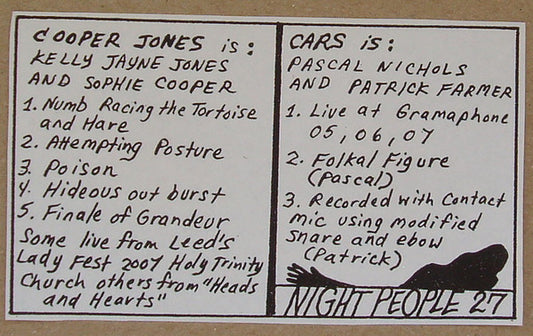 COOPER JONES is:
KELLY JAYNE JONES
AND SOPHIE COOPER
1. Numb Racing the Tortoise
and Hare
2. Attempting Posture
3. Poison
4. Hideous out burst
5. Finale of Grandeur
Some live from Leed's
Lady Fest 2007 Holy Trinity
Church others from "Heads
and Hearts"
CARS is:
PASCAL NICHOLS
AND PATRICK FARMER
1. Live at Gramaphone
05, 06, 07
2. Folkal Figure
(Pascal)
3. Recorded with Contact
mic using modified
snare and ebow
(Patrick)
NIGHT PEOPLE 27